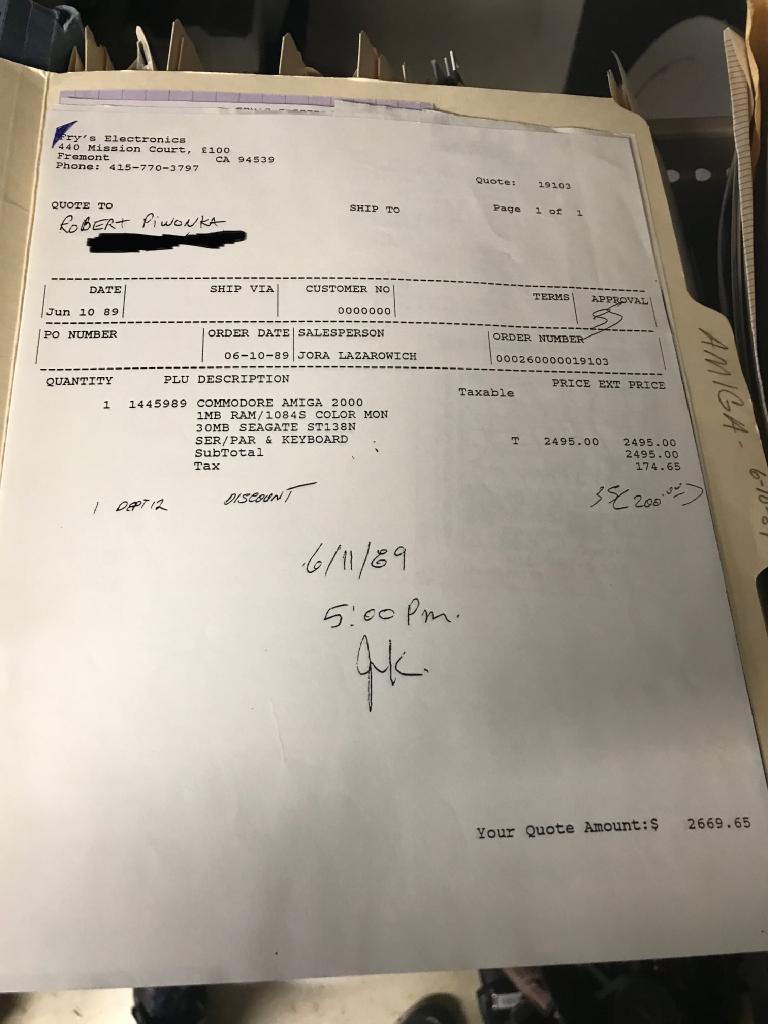 Fry's Electronics
440 Mission Court, £100
Fremont CA 94539
Phone: 415-770-3797
Quote: 19103
QUOTE TO SHIP TO Page 1 of 1
ROBERT PIWONKA
DATE SHIP VIA CUSTOMER NO TERMS APPROVAL
Jun 10 89 0000000
PO NUMBER ORDER DATE SALESPERSON ORDER NUMBER
06-10-89 JORA LAZAROWICH 000260000019103
QUANTITY PLU DESCRIPTION Taxable PRICE EXT PRICE
1 1445989 COMMODORE AMIGA 2000
1MB RAM/1084S COLOR MON
30MB SEAGATE ST138N
SER/PAR & KEYBOARD T 2495.00 2495.00
SubTotal 2495.00
Tax 174.65
1 DEPT 12 DISCOUNT (200.00)
6/11/89
5:00 Pm.
Your Quote Amount:$ 2669.65
AMIGA - 6-10-89